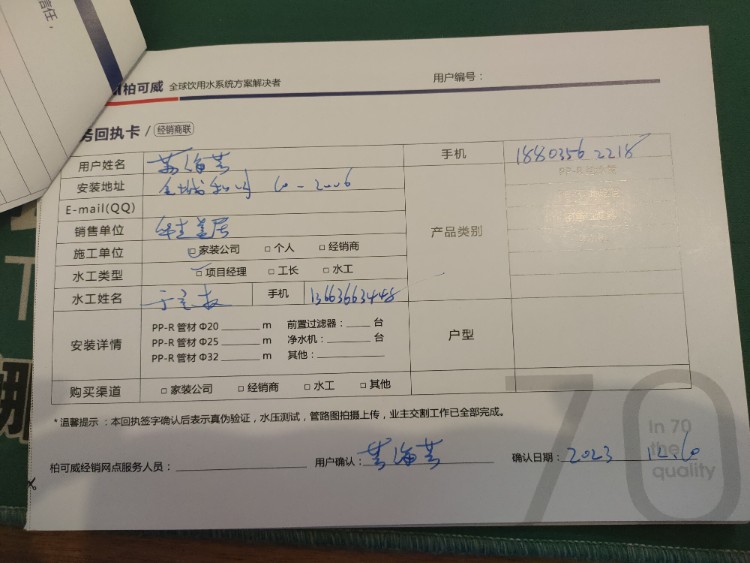 信任,
柏可威 全球饮用水系统方案解决者
用户编号：
务回执卡 / 经销商联
用户姓名 手机 18803562218
安装地址 10-2006
E-mail(QQ)
销售单位 产品类别
施工单位 □家装公司 □个人 □经销商
水工类型 □项目经理 □工长 □水工
水工姓名 手机 13663663448
安装详情 户型
PP-R 管材 Φ20 ______ m 前置过滤器：____ 台
PP-R 管材 Φ25 ______ m 净水机：____ 台
PP-R 管材 Φ32 ______ m 其他：
购买渠道 □家装公司 □经销商 □水工 □其他
*温馨提示：本回执签字确认后表示真伪验证，水压测试，管路图拍摄上传，业主交割工作已全部完成。
70
In 70
the
quality
柏可威经销网点服务人员：
用户确认： 确认日期：2023 12.10